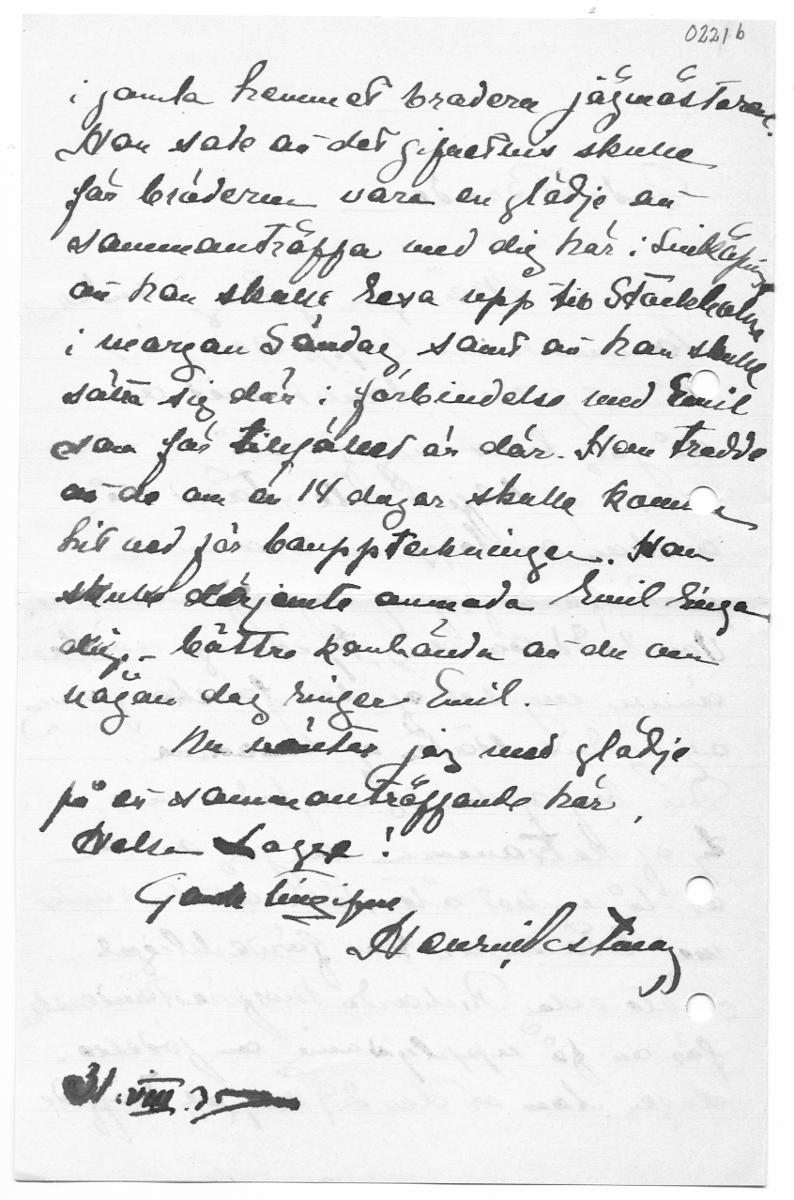 0221 b
i gamla hemmet brodern jägmästaren.
Han sade att det gifvetvis skulle
för bröderna vara en glädje att
sammanträffa med dig här i Linköping
att han skulle resa upp till Stockholm
i morgon Söndag samt att han skulle
sätta sig där i förbindelse med Emil
som för tillfället är där. Han trodde
att de om en 14 dagar skulle komma
hit ned för bouppteckningen. Han
skulle därjemte anmoda Emil ringa
dig, - bättre kanhända att du om
någon dag ringer Emil.
Nu väntar jag med glädje
på ett sammanträffande här,
Helsa
Henric Westman
31.VIII.3